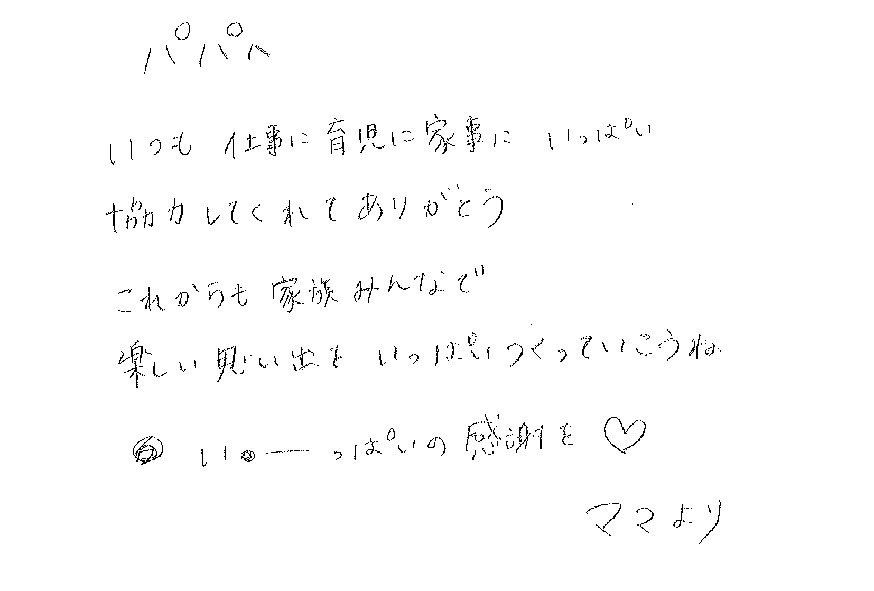 パパへ
いつも 仕事に育児に家事に いっぱい
協力してくれてありがとう
これからも 家族みんなで
楽しい思い出を いっぱいつくっていこうね
い ーっぱいの感謝を ♡
ママより